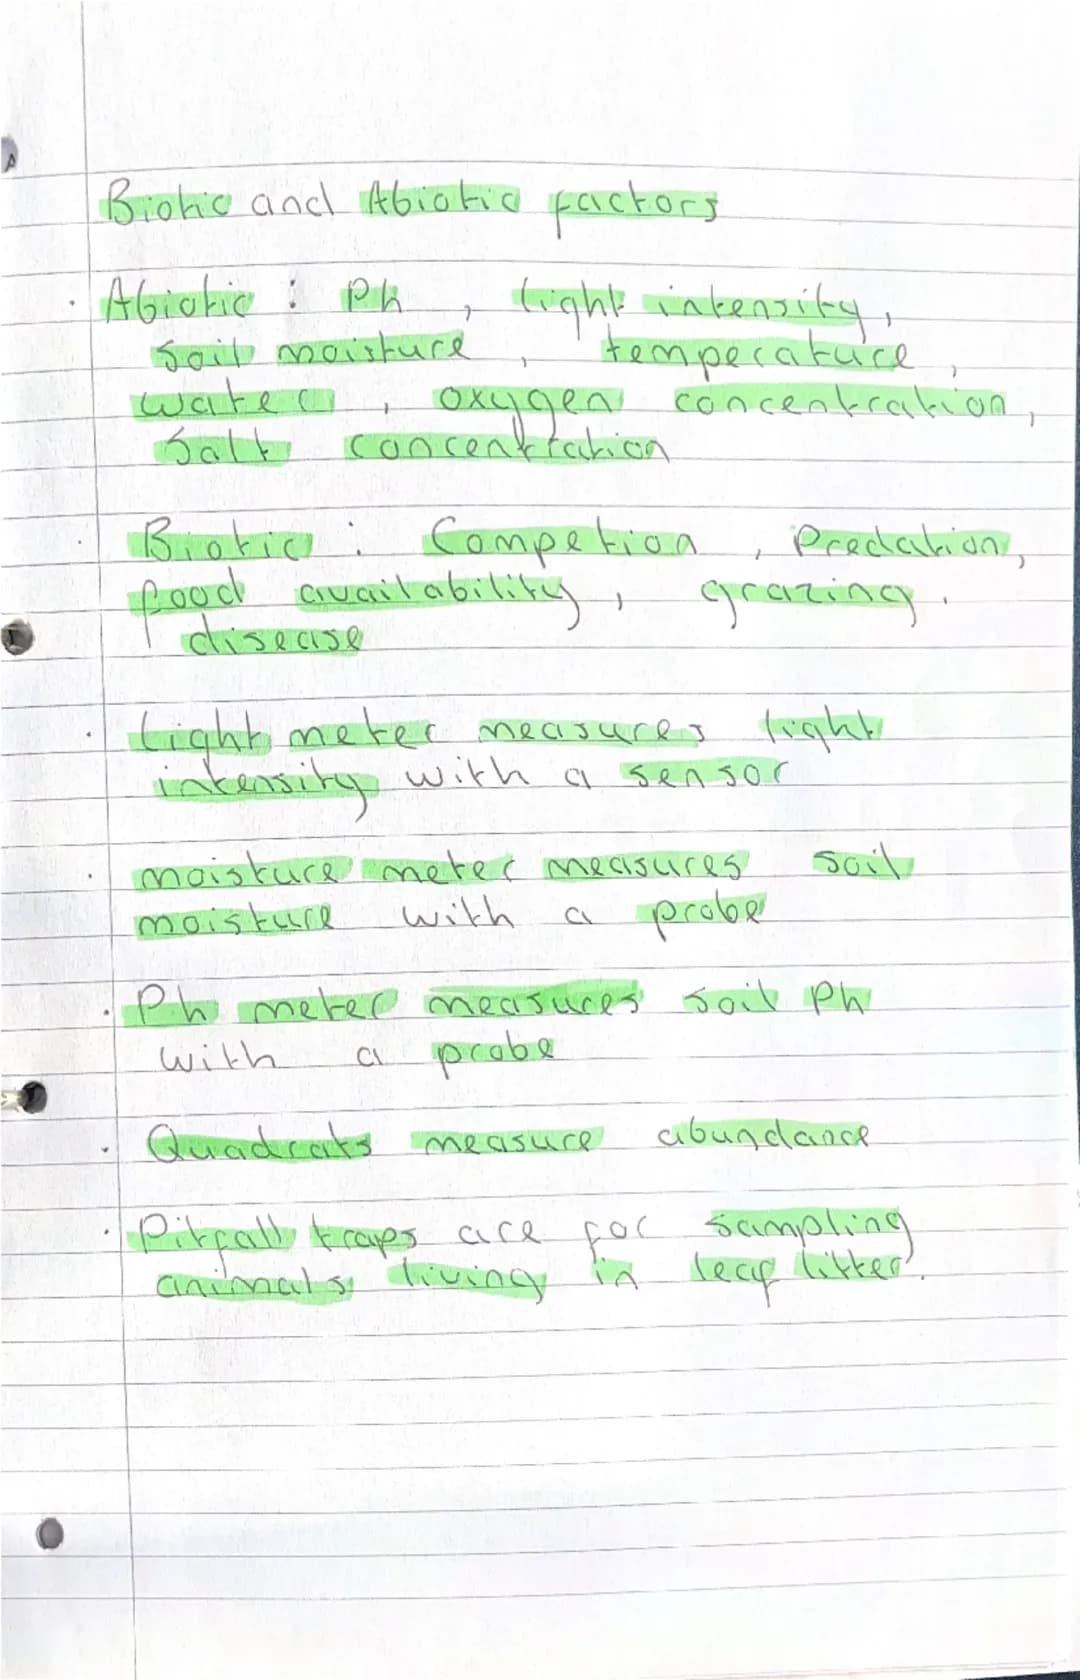 Biotic and Abiotic factors
Abiotic : Ph , light intensity,
soil moisture , temperature,
water , oxygen concentration,
Salt concentration
Biotic : Competion , Predation,
food availability, grazing.
disease
Light meter measures light
intensity with a sensor
moisture meter measures soil
moisture with a probe
Ph meter measures soil Ph
with a probe
Quadrats measure abundance
Pitfall traps are for sampling
animals living in leaf litter.